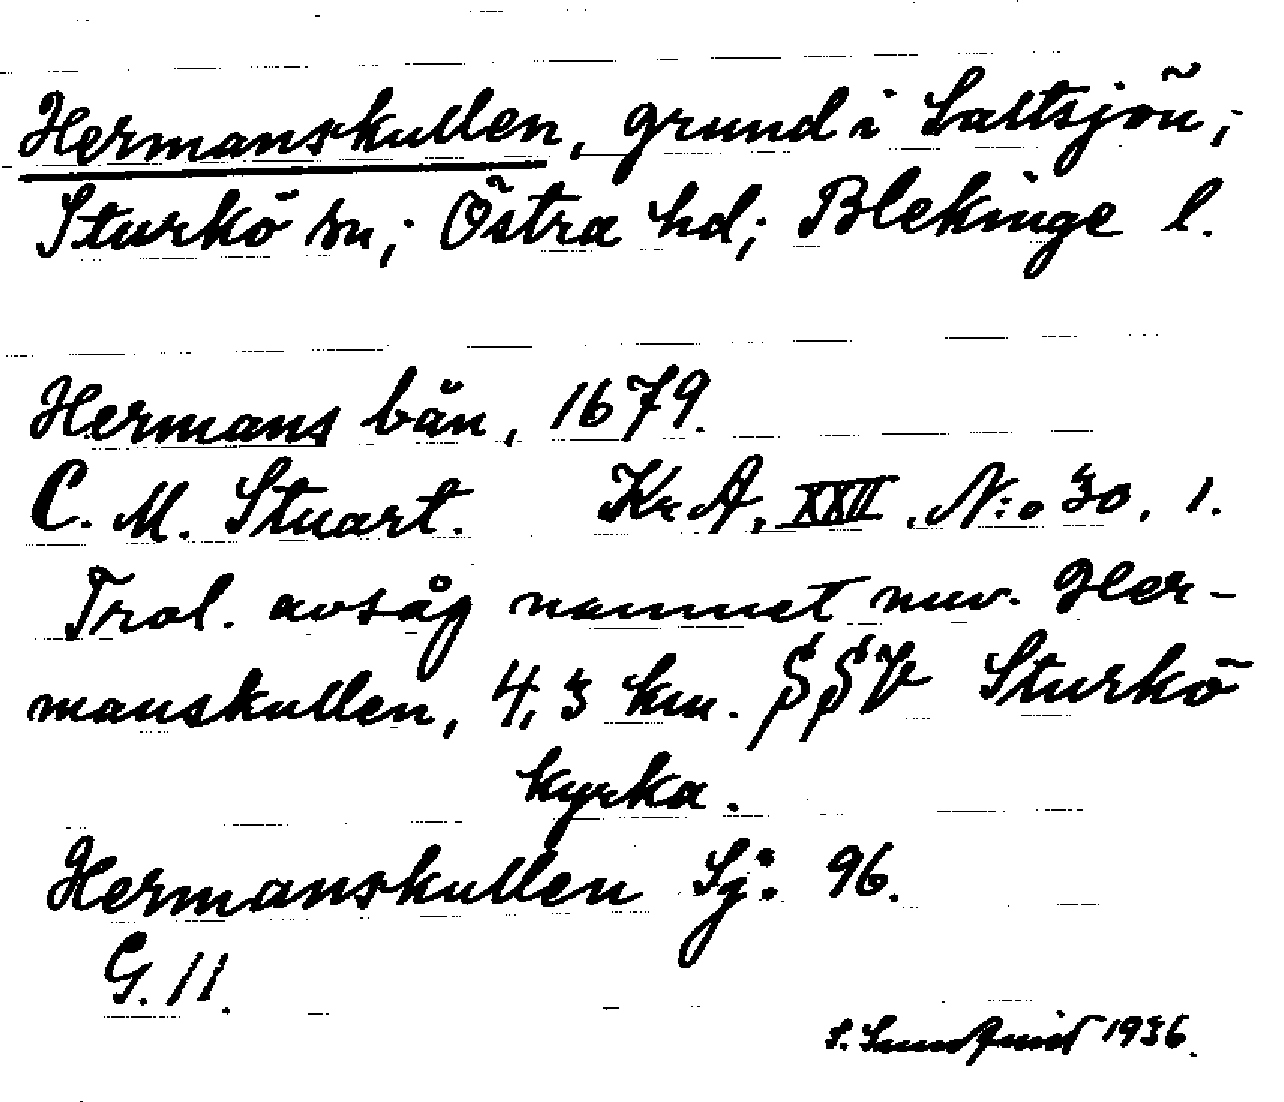 Hermanskullen, grund i Saltsjön,
Sturkö sn; Östra hd; Blekinge l.
Hermans bån, 1679.
C. M. Stuart. Kr.A. XXII. N:o 30. 1.
Trol. avsåg namnet nuv. Her-
manskullen, 4,3 km. SSV Sturkö
kyrka.
Hermanskullen Sj: 96.
G. 11.
S. Sundqvist 1936.